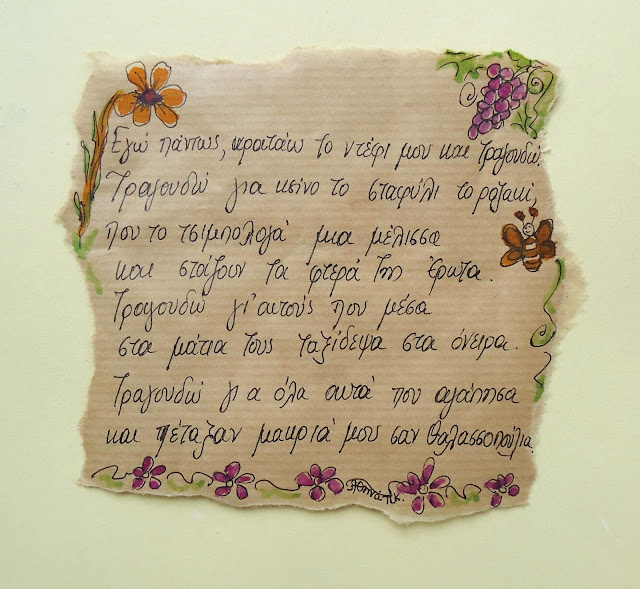 Εγώ πάντως, κρατάω το ντέφι μου και τραγουδώ.
Τραγουδώ για κείνο το σταφύλι το ροζακί,
που το τσιμπολογά μια μέλισσα
και στάζουν τα φτερά της έρωτα.
Τραγουδώ γι' αυτούς που μέσα
στα μάτια τους ταξίδεψα στα όνειρα.
Τραγουδώ για όλα αυτά που αγάπησα
και πέταξαν μακριά μου σαν θαλασσοπούλια.
Αθηνά Π.Κ.